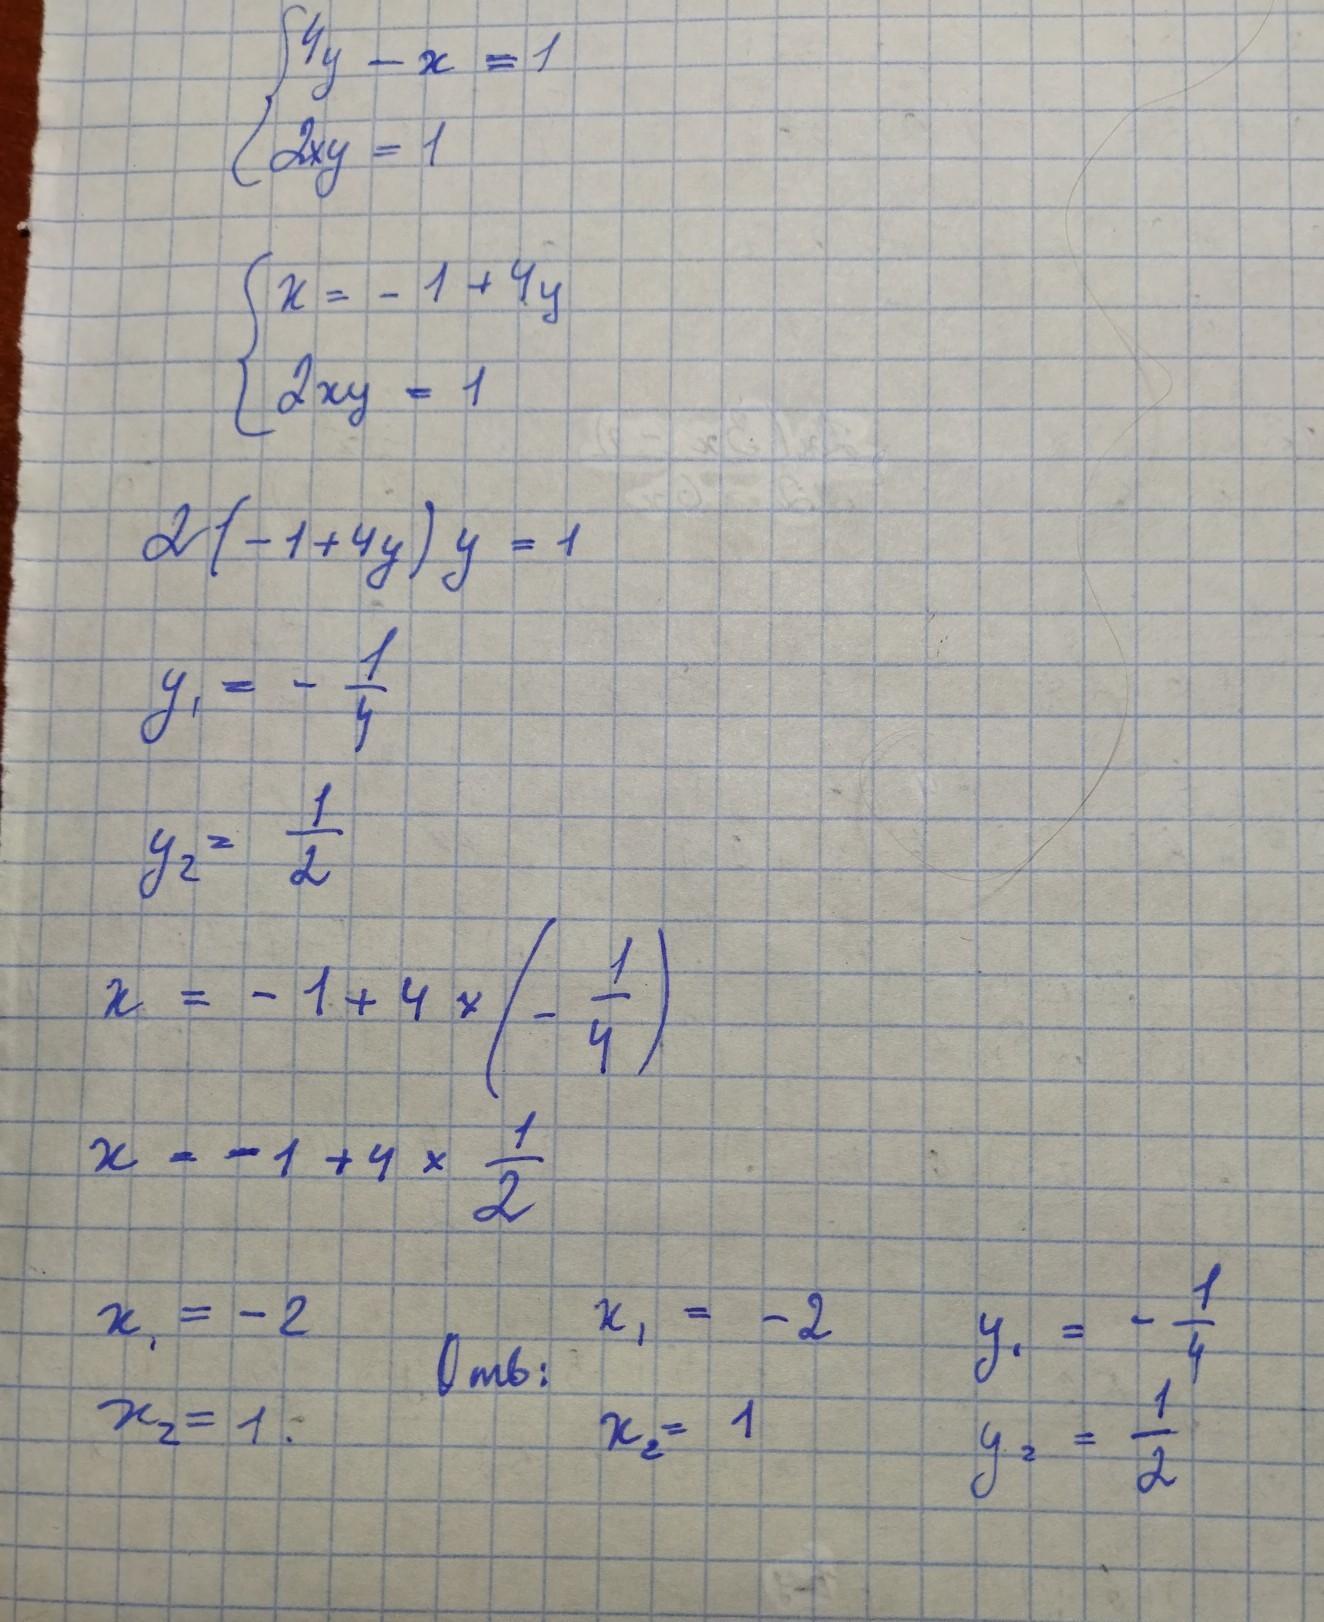 4y - x = 1
2xy = 1
x = - 1 + 4y
2xy = 1
2(-1+4y)y = 1
y₁ = - 1/4
y₂ = 1/2
x = - 1 + 4 × (- 1/4)
x = - 1 + 4 × 1/2
x₁ = -2
x₂ = 1.
Отв:
x₁ = -2 y₁ = - 1/4
x₂ = 1 y₂ = 1/2